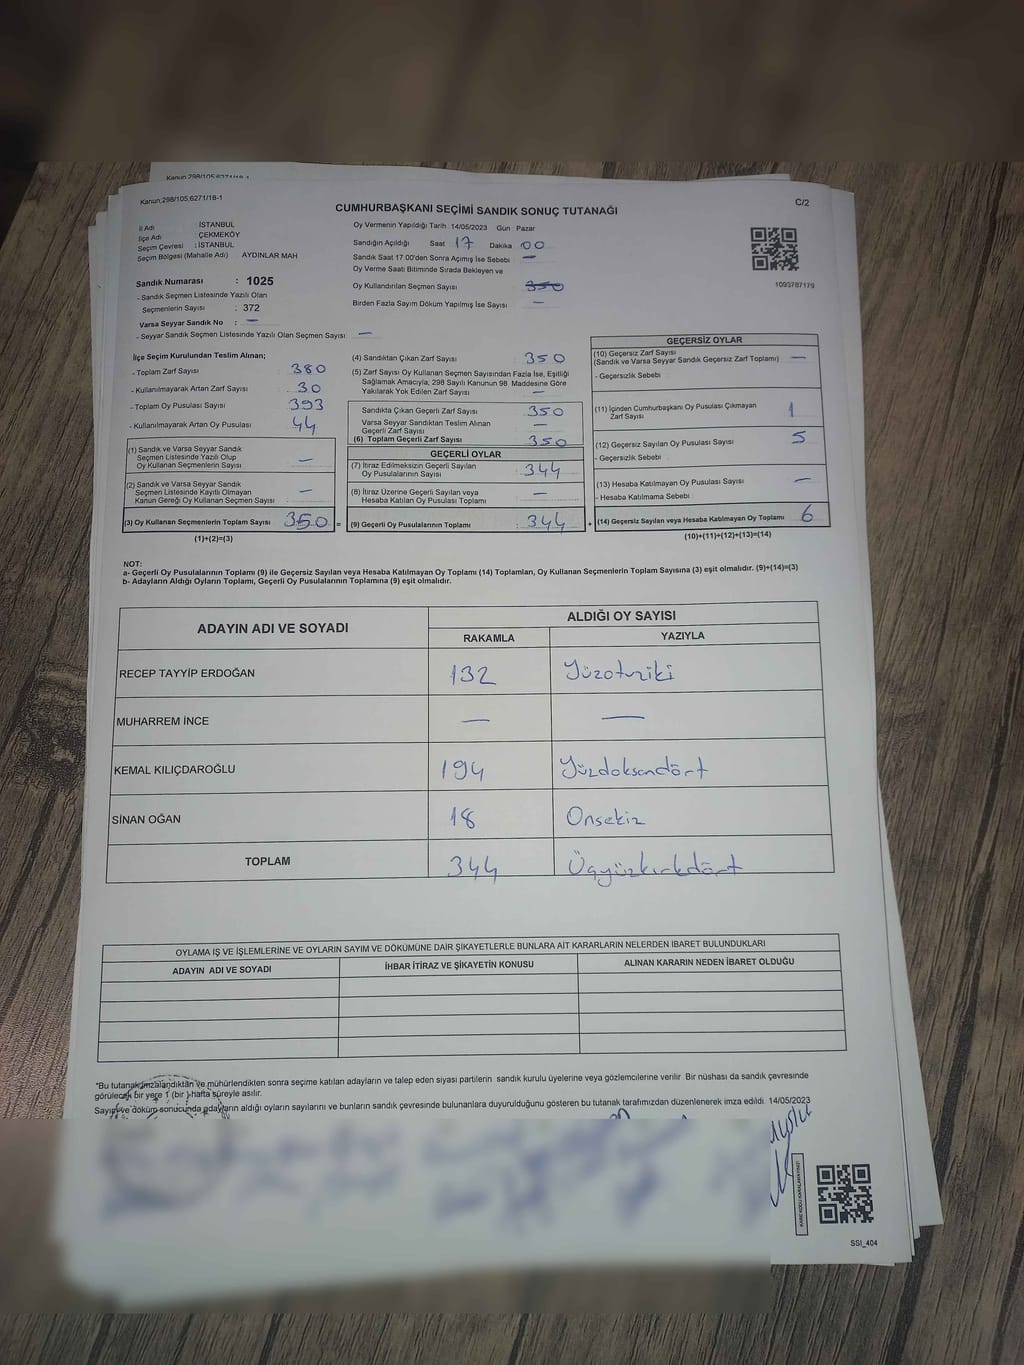 Kanun:298/105;6271/18-1
Kanun:298/105;6271/18-1
C/2
CUMHURBAŞKANI SEÇİMİ SANDIK SONUÇ TUTANAĞI
İl Adı : İSTANBUL
İlçe Adı : ÇEKMEKÖY
Seçim Çevresi : İSTANBUL
Seçim Bölgesi (Mahalle Adı) AYDINLAR MAH
Sandık Numarası : 1025
- Sandık Seçmen Listesinde Yazılı Olan
Seçmenlerin Sayısı : 372
Varsa Seyyar Sandık No : —
- Seyyar Sandık Seçmen Listesinde Yazılı Olan Seçmen Sayısı —
Oy Vermenin Yapıldığı Tarih 14/05/2023 Gün Pazar
Sandığın Açıldığı Saat 17 Dakika 00
Sandık Saat 17:00'den Sonra Açımış İse Sebebi —
Oy Verme Saati Bitiminde Sırada Bekleyen ve
Oy Kullandırılan Seçmen Sayısı 350
Birden Fazla Sayım Döküm Yapılmış İse Sayısı —
1093787179
İlçe Seçim Kurulundan Teslim Alınan;
- Toplam Zarf Sayısı 380
- Kullanılmayarak Artan Zarf Sayısı 30
- Toplam Oy Pusulası Sayısı 393
- Kullanılmayarak Artan Oy Pusulası 44
(1) Sandık ve Varsa Seyyar Sandık
Seçmen Listesinde Yazılı Olup
Oy Kullanan Seçmenlerin Sayısı —
(2) Sandık ve Varsa Seyyar Sandık
Seçmen Listesinde Kayıtlı Olmayan
Kanun Gereği Oy Kullanan Seçmen Sayısı —
(3) Oy Kullanan Seçmenlerin Toplam Sayısı 350 =
(1)+(2)=(3)
(4) Sandıktan Çıkan Zarf Sayısı 350
(5) Zarf Sayısı Oy Kullanan Seçmen Sayısından Fazla İse, Eşitliği
Sağlamak Amacıyla, 298 Sayılı Kanunun 98 Maddesine Göre
Yakılarak Yok Edilen Zarf Sayısı —
Sandıkta Çıkan Geçerli Zarf Sayısı 350
Varsa Seyyar Sandıktan Teslim Alınan
Geçerli Zarf Sayısı —
(6) Toplam Geçerli Zarf Sayısı 350
GEÇERLİ OYLAR
(7) İtiraz Edilmeksizin Geçerli Sayılan
Oy Pusulalarının Sayısı : 344
(8) İtiraz Üzerine Geçerli Sayılan veya
Hesaba Katılan Oy Pusulası Toplamı —
(9) Geçerli Oy Pusulalarının Toplamı : 344 +
GEÇERSİZ OYLAR
(10) Geçersiz Zarf Sayısı
(Sandık ve Varsa Seyyar Sandık Geçersiz Zarf Toplamı) —
- Geçersizlik Sebebi
(11) İçinden Cumhurbaşkanı Oy Pusulası Çıkmayan
Zarf Sayısı 1
(12) Geçersiz Sayılan Oy Pusulası Sayısı 5
- Geçersizlik Sebebi
(13) Hesaba Katılmayan Oy Pusulası Sayısı —
- Hesaba Katılmama Sebebi
(14) Geçersiz Sayılan veya Hesaba Katılmayan Oy Toplamı 6
(10)+(11)+(12)+(13)=(14)
NOT:
a- Geçerli Oy Pusulalarının Toplamı (9) ile Geçersiz Sayılan veya Hesaba Katılmayan Oy Toplamı (14) Toplamları, Oy Kullanan Seçmenlerin Toplam Sayısına (3) eşit olmalıdır. (9)+(14)=(3)
b- Adayların Aldığı Oyların Toplamı, Geçerli Oy Pusulalarının Toplamına (9) eşit olmalıdır.
ADAYIN ADI VE SOYADI
ALDIĞI OY SAYISI
RAKAMLA YAZIYLA
RECEP TAYYİP ERDOĞAN 132 Yüzotuziki
MUHARREM İNCE — —
KEMAL KILIÇDAROĞLU 194 Yüzdoksandört
SİNAN OĞAN 18 Onsekiz
TOPLAM 344 Üçyüzkırkdört
OYLAMA İŞ VE İŞLEMLERİNE VE OYLARIN SAYIM VE DÖKÜMÜNE DAİR ŞİKAYETLERLE BUNLARA AİT KARARLARIN NELERDEN İBARET BULUNDUKLARI
ADAYIN ADI VE SOYADI İHBAR İTİRAZ VE ŞİKAYETİN KONUSU ALINAN KARARIN NEDEN İBARET OLDUĞU
"Bu tutanak imzalandıktan ve mühürlendikten sonra seçime katılan adayların ve talep eden siyasi partilerin sandık kurulu üyelerine veya gözlemcilerine verilir Bir nüshası da sandık çevresinde
görülecek bir yere 1 (bir )-hafta süreyle asılır.
Sayım ve döküm sonucunda adayların aldığı oyların sayılarını ve bunların sandık çevresinde bulunanlara duyurulduğunu gösteren bu tutanak tarafımızdan düzenlenerek imza edildi. 14/05/2023
SSI_404